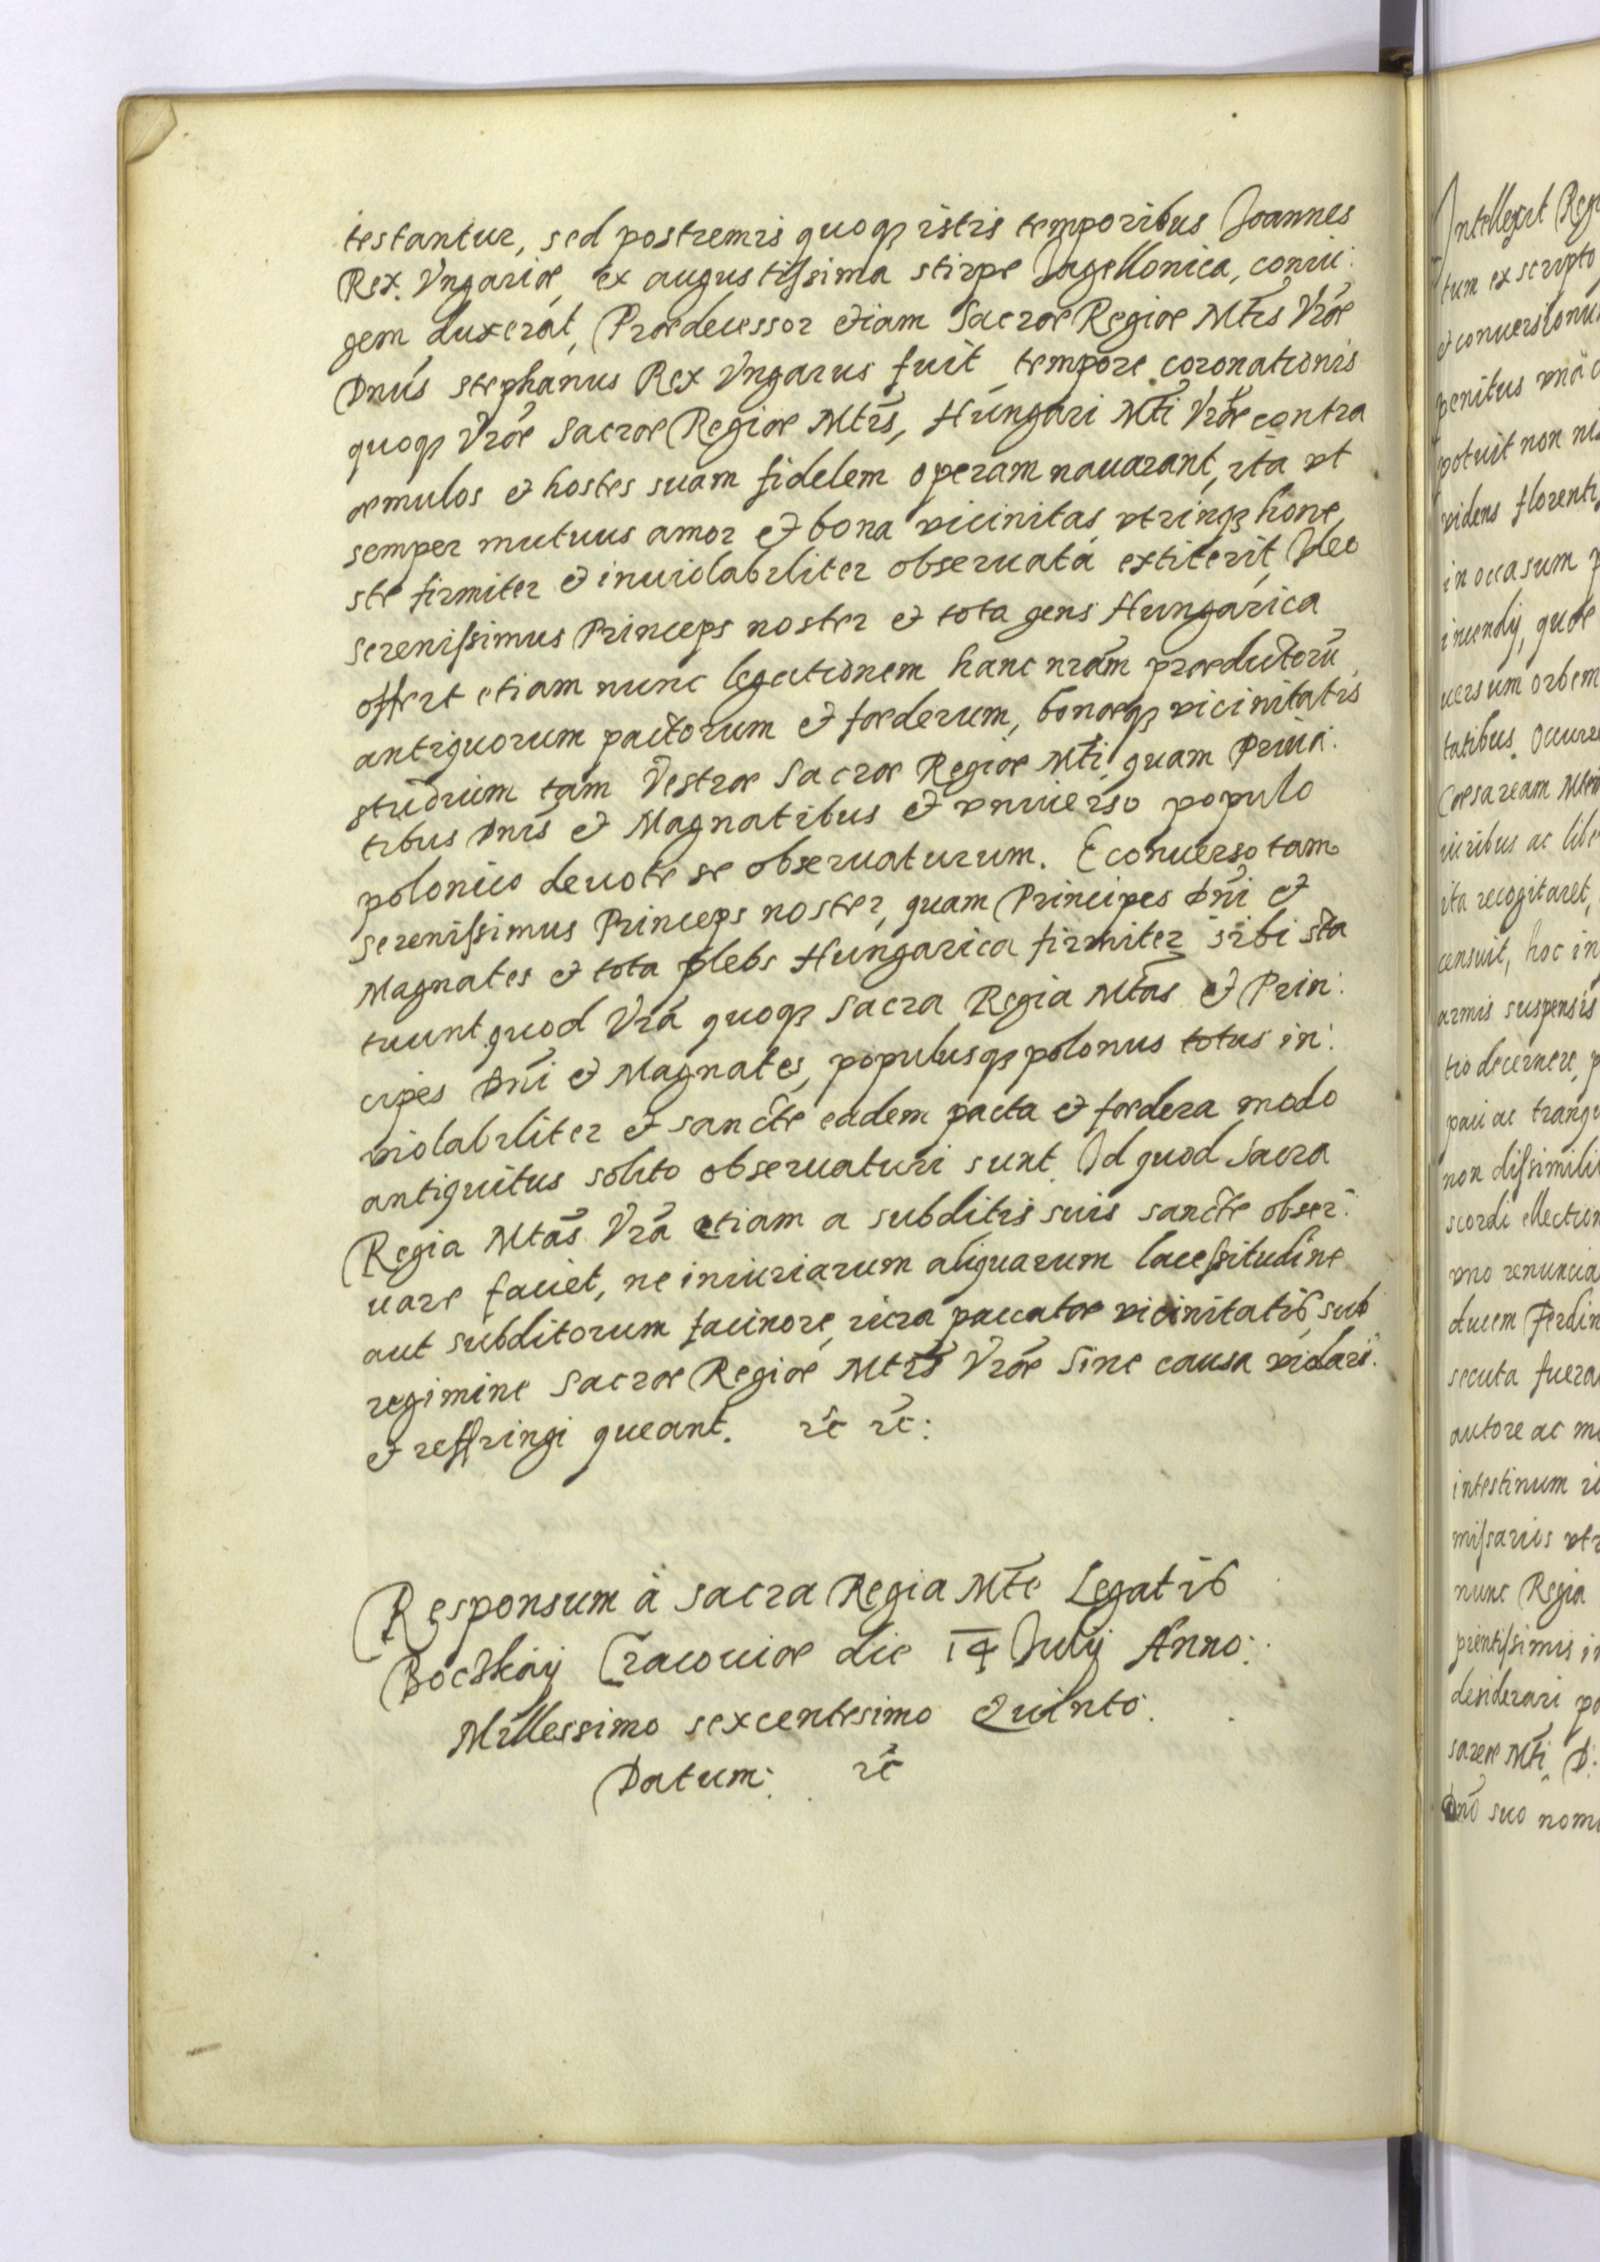 testantur, sed postremis quoqȝ istis temporibus Joannes
Rex Vngariæ, ex augustissima stirpe Jagellonica, coniu:
gem duxerat, Prædecessor etiam Sacræ Regiæ Mtis Vræ
Dnus Stephanus Rex Vngarus fuit, tempore coronationis
quoqȝ Vræ Sacræ Regiæ Mtis, Hungari Mti Vræ contra
æmulos et hostes suam fidelem operam nauarant, ita vt
semper mutuus amor et bona vicinitas vtrinqȝ hone
ste firmiter et inuiolabiliter obseruata extiterit, Ideo
Serenissimus Princeps noster et tota gens Hungarica
offert etiam nunc legationem hanc nram prædictorū
antiquorum pactorum et fœderum, bonæqȝ vicinitatis
studium tam Vestræ Sacræ Regiæ Mti, quam Princi:
tibus Dnis et Magnatibus et vniuerso populo
polonico deuote se obseruaturum. Econuerso tam
serenissimus Princeps noster, quam Principes Dni et
Magnates et tota plebs Hungarica firmiter sibi sta
tuunt quod Vra quoqȝ Sacra Regia Mtas et Prin:
cipes Dni et Magnates, populusqȝ polonus totus in:
violabiliter et sancte eadem pacta et fœdera modo
antiquitus solito obseruaturi sunt. Id quod Sacra
Regia Mtas Vra etiam a subditis suis sancte obser:
uare faciet, ne iniuriarum aliquarum lacessitudine
aut subditorum facinore, iura paccatæ vicinitatis, sub
regimine Sacræ Regiæ Mtis Vræ Sine causa violari
et reffringi queant. ꝛc ꝛc:
Responsum à Sacra Regia Mte Legatis
Bockkaÿ Cracouiæ die 14 Julij Anno:
Millessimo sexcentesimo Quinto.
Datum: ꝛc
Intellexit Reg
tum ex scripto
et conuersionū
penitus vnā c
potuit non nis
videns florenti
in occasum p
incendij, quæ
uersum orbem
tatibus. Occurr
Cæsaream Mtem
iuribus ac libe
ita recogitaret,
censuit, hoc in
armis suspensis
tio decernere, p
paci ac tranqu
non dissimili
scordi ellection
vno renuncia
ducem Ferdin
secuta fuera
autore ac mo
intestinum
missarios vtr
nunc Regia
prentissimis in
desiderari po
sareæ Mti D:
Dno suo nomi